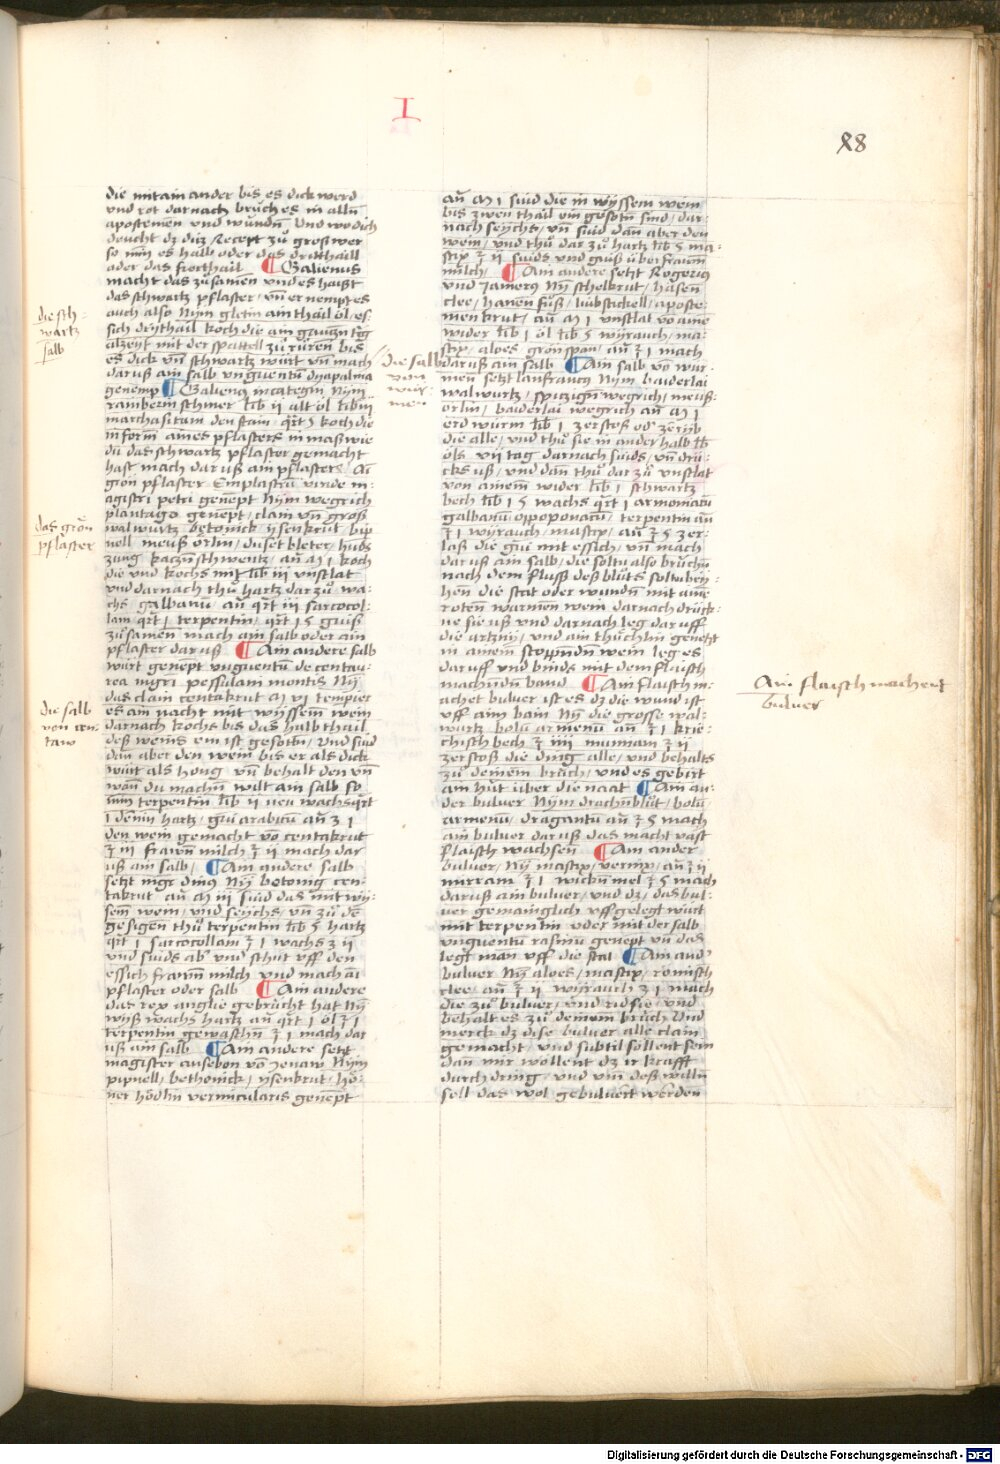 I
88
die mitainander bis es dick werd
vnd rot darnach brúch es in alln̄
apostemen vnd wúndn̄ Vnd wo dich
deucht dz diz Recept zů groß wer
so nim es halb oder das dritthaill
oder das fierthail ¶ Galienus
macht das zůsamen vnd es haißt
das schwartz pflaster / vn̄ er nempt es
auch also Nym gletin ain thail öl / es-
sich drythail koch die ain gantzn̄ tag
alzeyt mit der spattell zů rüren bis
es dick vn̄ schwartz würt vn̄ mach
daruß ain salb vnguentū dyapalma
genemp ¶ Galienus in categin Nym
rainberin schmer lib ii alt öl lib iii
marchasitam den stain / qrt 5 koch die
in form aines pflasters in maß wie
du das schwartz pflaster gemacht
hast mach daruß ain pflaster / Ai
grön pflaster Emplastrū viride m-
agistri petri genēpt Nym wegrich
plantago genēpt / clain vn̄ groß
walwurtz betonick / ysenkrut / bip
nell meuß örlin / duset bleter / hūds
zung katzn̄schwentz / an̄ m i koch
die vnd kochs mit lib iii vnslat
vnd darnach thů hartz dar zů wa-
chs galbanū / an̄ qrt iii sarcocol-
lam qrt i terpentin / qrt i 5 guiß
zůsamen mach ain salb oder ain
pflaster daruß ¶ Ain andere salb
würt genēpt vnguentū de centau-
rea nigri pessulani montis Ny
das clain centakrut m vj tempier
es ain nacht mit wyssem wein
darnach kochs bis das halb thail
deß weins ein ist gesottn̄ / vnd suid
dan aber den wein bis er als dick
würt als hong vn̄ behalt den vn̄
wan̄ du machn̄ wilt ain salb so
nim terpentin lib ii neu wachs qrt
i denin hartz / gūi arabicū an̄ ʒ i
den wein gemacht vō centakrut
ʒ iii frawn̄ milch ʒ ii mach dar
uß ain salb / ¶ Ain andere salb
setzt mgr dinus Ny betonig cen-
takrut an̄ m iii suid das mit wy-
sem wein / vnd seychs / vn̄ zů dē
gesigen thů terpentin lib 5 hartz
qrt i sarcocollam ʒ i wachs ʒ ii
vnd suids ab vnd schut vff den
essich frawn̄ milch vnd mach ai
pflaster oder salb ¶ Ain andere
das rex anglie gebrücht hat Ny
wyß wachs hartz an̄ qrt i öl ʒ i
terpentin gewaschn̄ ʒ i mach dar
uß ain salb ¶ Ain andere setzt
magister ausebon vō Jenaw Nym
pipnell / bethonick / ysenkrut / hö-
ner hödlin vermicularis genēpt
an̄ m i suid die in wyssem wein
bis zwen thail ein gesotn̄ sind / dar-
nach seychs / vn̄ suid dan̄ aber den
wein / vnd thů dar zů hartz lib 5 ma-
stix ʒ ii suids vnd guiß über frawn̄
milch / ¶ Ain andere setzt Rogerius
vnd Jamerus Ny schelbrut / hasen
clee / hanen fůß / lübstickell / aposte-
men krut / an̄ m i vnslat vō aine
wider lib i öl lib 5 wyrauch / ma-
stix / aloes grönspon / an̄ ʒ i mach
daruß ain salb ¶ Ain salb vō wür-
men setzt lanfrancus Nym baiderlai
walwurtz / spitzign̄ wegrich / meuß-
örlin / baiderlai wegrich an̄ m i
erd würm lib i zerstoß od' zerrÿb
die alle / vnd thů sie in anderhalb lib
öls vii tag darnach suids / vn̄ drü-
cks uß / vnd dan̄ thů dar zů vnslat
von ainem wider lib i schwartz
bech lib i 5 wachs qrt i armoniacū
galbanū oppoponacū / terpentin an̄
ʒ i wyrauch / mastix / an̄ ʒ 5 zer-
laß die gūi mit essich / vn̄ mach
daruß ain salb / die soltu also brüchn̄
nach dem fluß deß blůts soltu bey-
hen die stat oder wundn̄ mit aine
rotem warmen wein darnach drück-
ne sie uß vnd darnach leg daruff
die artzny / vnd ain thüchlin genetzt
in ainem stoppndn̄ wein leg es
daruff vnd binds mit dem flaisch
machndn̄ band ¶ Ain flaisch m-
achet bulver ist es dz die wund ist
vff aim bain Ny die grosse wal-
wurtz bolū armenū an̄ ʒ i krie-
chisch bech ʒ iiii mumiam ʒ ii
zerstoß die ding alle / vnd behalts
zů deinem brüch / vnd es gebirt
ain hut über die naat ¶ Ain an-
der bulver Nym drachn̄blůt / bolū
armenū / dragantū an̄ ʒ 5 mach
ain bulver daruß das macht vast
flaisch wachsen ¶ Ain ander
bulver / Ny mastix / vernix / an̄ ʒ ii
mirram ʒ i wickn̄ mel ʒ 5 mach
daruß ain bulver / vnd dz / das bul-
ver gemainglich vff gelegt würt
mit terpentin oder mit der salb
vnguentū rasinū genēpt vn̄ das
legt man vff die stat ¶ Ain and'
bulver Ny aloes / mastix / römisch
clee / an̄ ʒ ii wyrauch ʒ i mach
die zů bulver / vnd rid sie / vnd
behalt es zů deinem brüch Vnd
merck dz dise bulver alle clain
gemacht / vnd subtil söllent sein
dan̄ mir wöllent dz ir krafft
durch dring / vnd vm̄ deß willn̄
soll das wol gebulvert werden
die sch-
wartz
salb
das grön
pflaster
die salb
von cen
taw
die salb
von
wür-
men
Ain flaisch machent
bulver
Digitalisierung gefördert durch die Deutsche Forschungsgemeinschaft - DFG